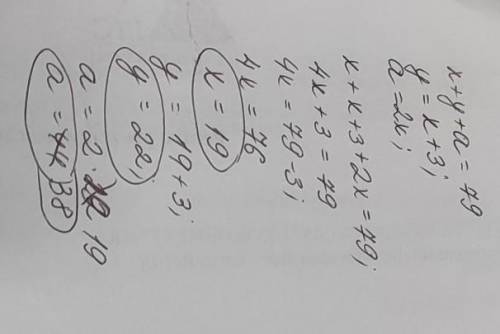 x+y+a=79
y=x+3;
a=2x;
x+x+3+2x=79;
4x+3=79
4x=79-3;
4x=76
x=19
y=19+3;
y=22;
a=2·19
a=38